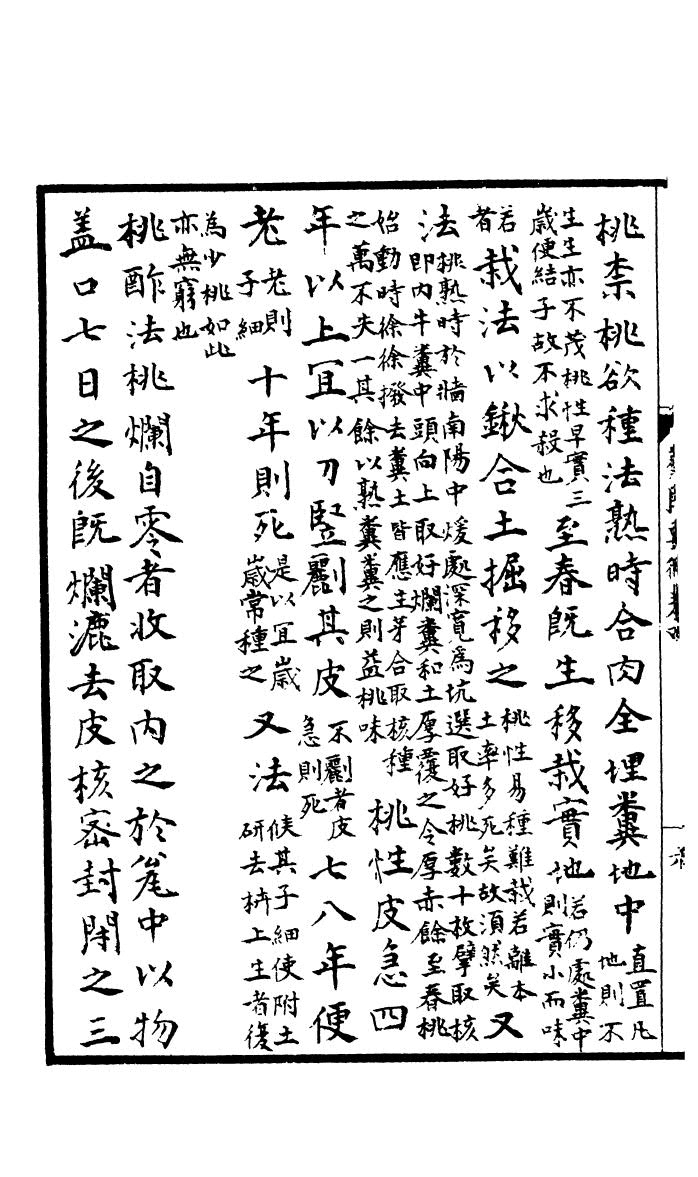 桃柰桃欲種法熟時合肉全埋糞地中直置凡地則不
生生亦不茂桃性早實三歲便結子故不求殺也至春既生移栽實地若仍處糞中則實小而味
苦者栽法以鍬合土掘移之桃性易種難栽若離本土率多死矣故須然矣又
法桃熟時於牆南陽中煖處深寬為坑選取好桃數十枚擘取核即内牛糞中頭向上取好爛糞和土厚覆之令厚赤餘至春桃
始動時徐徐撥去糞土皆應生芽合取核種之萬不失一其餘以熟糞糞之則益桃味桃性皮急四
年以上宜以刀豎劙其皮不劙者皮急則死七八年便
老老則子細十年則死是以宜歲歲常種之又法候其子細使附土研去枿上生者復
為少桃如此亦無窮也
桃酢法桃爛自零者收取内之於瓮中以物
盖口七日之後既爛漉去皮核密封閉之三